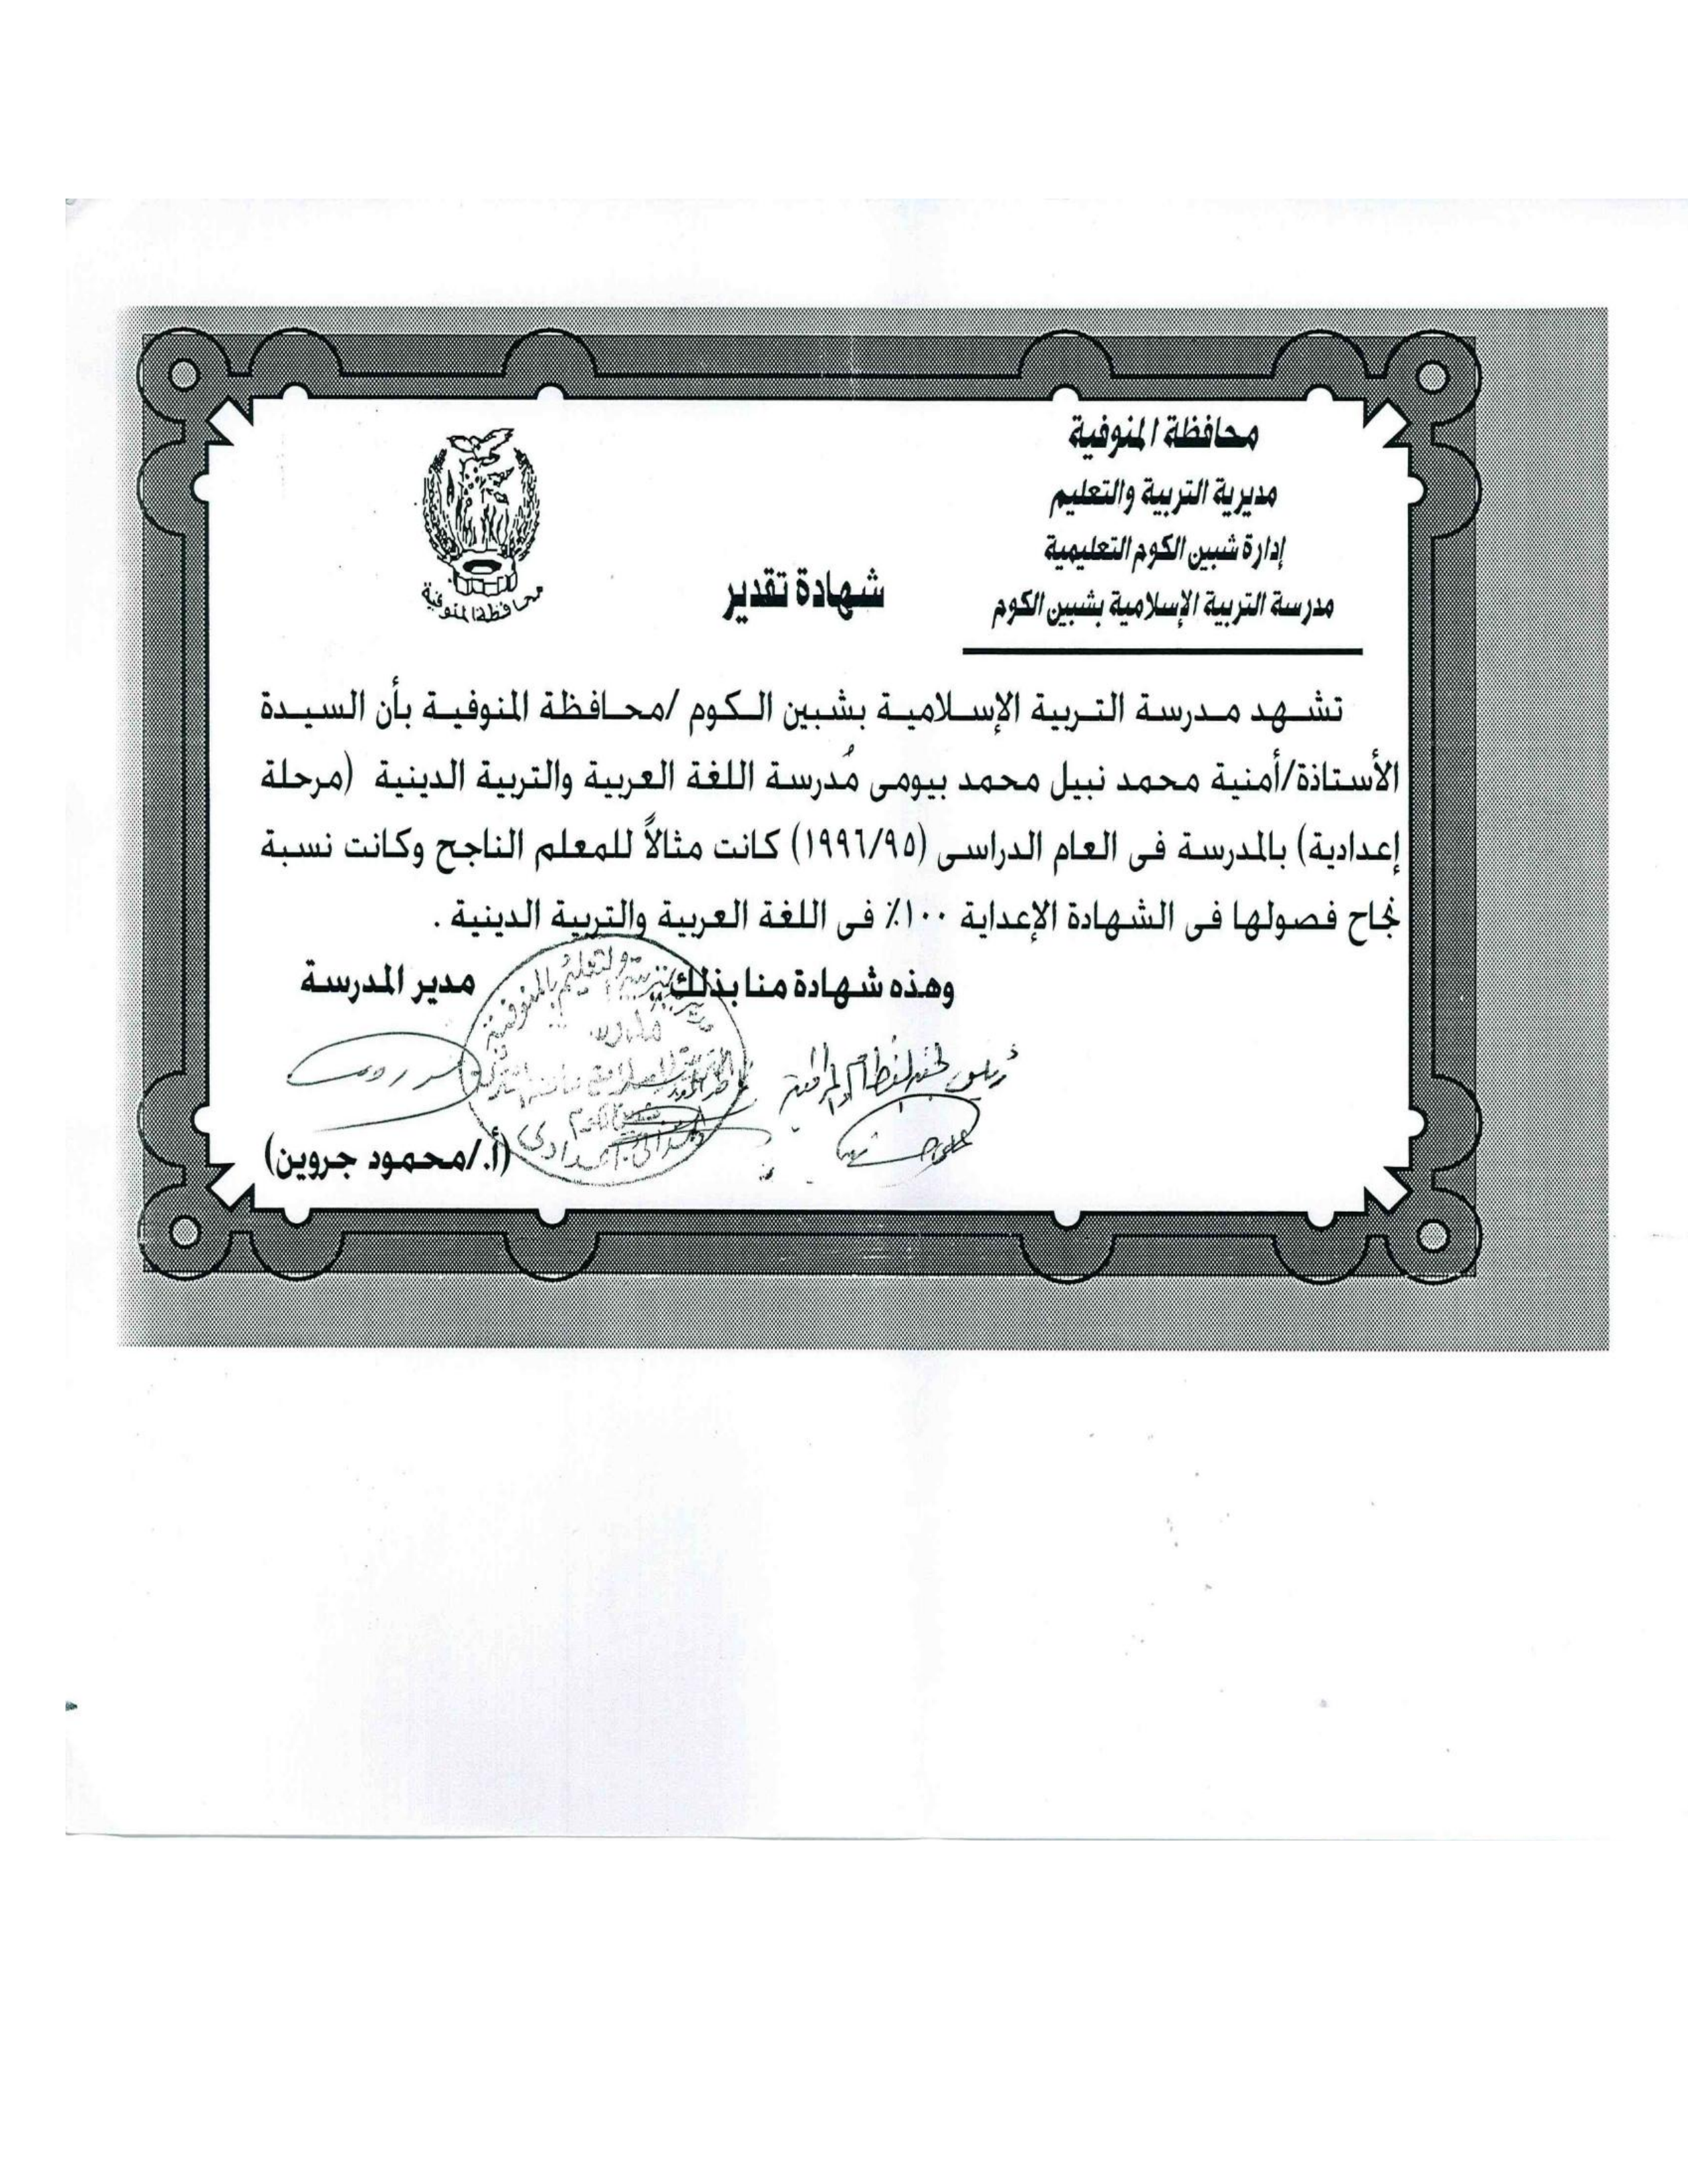 محافظة المنوفية
مديرية التربية والتعليم
إدارة شبين الكوم التعليمية
مدرسة التربية الإسلامية بشبين الكوم
محافظة المنوفية
شهادة تقدير
تشهد مدرسة التربية الإسلامية بشبين الكوم /محافظة المنوفية بأن السيدة
الأستاذة/أمنية محمد نبيل محمد بيومى مُدرسة اللغة العربية والتربية الدينية (مرحلة
إعدادية) بالمدرسة فى العام الدراسى (١٩٩٦/٩٥) كانت مثالاً للمعلم الناجح وكانت نسبة
نجاح فصولها فى الشهادة الإعداية ١٠٠٪ فى اللغة العربية والتربية الدينية .
وهذه شهادة منا بذلك ,,
مدير المدرسة
(أ./محمود جروين)